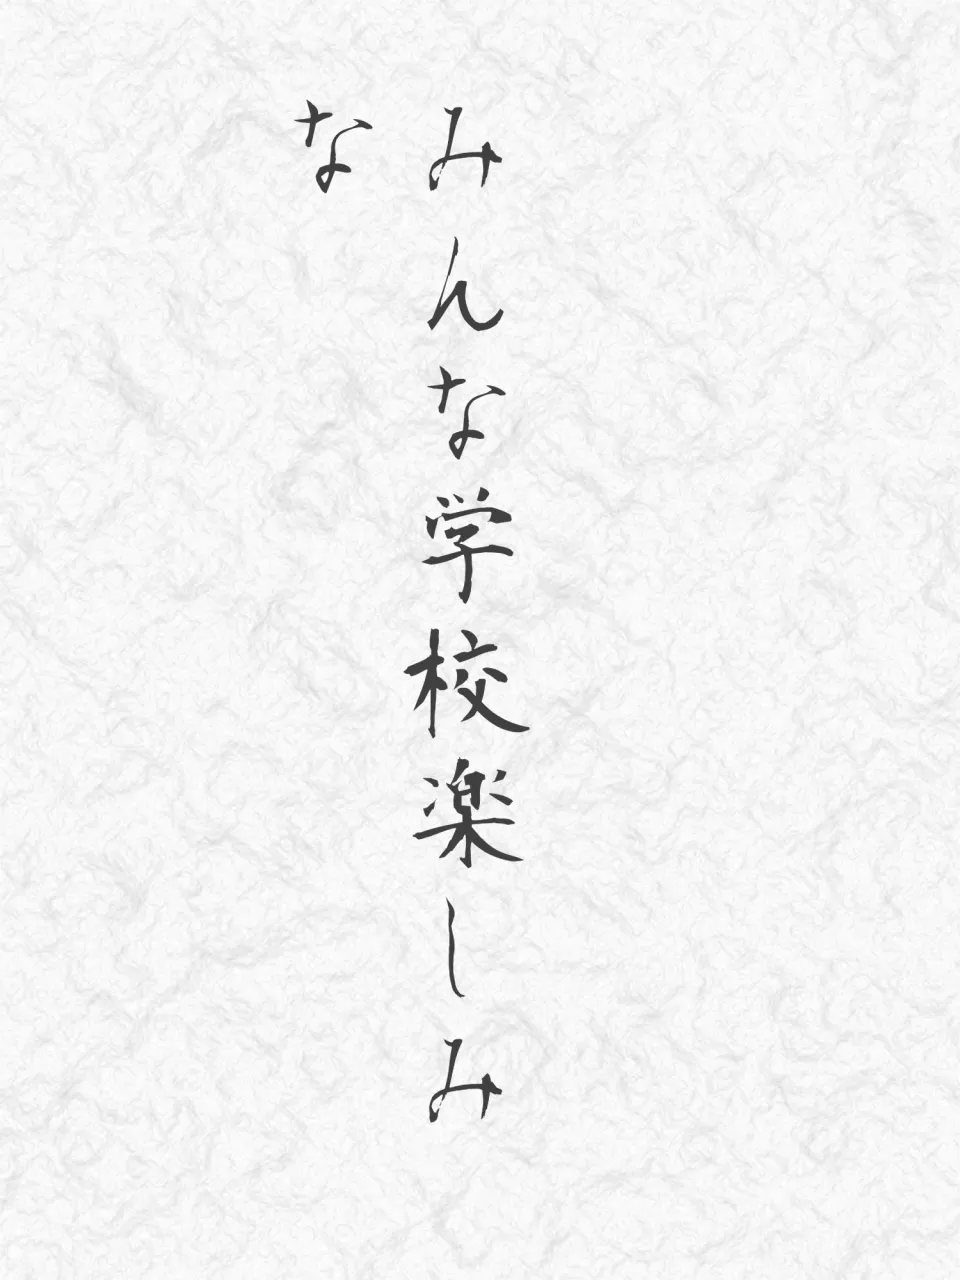 みんな学校楽しみ
な